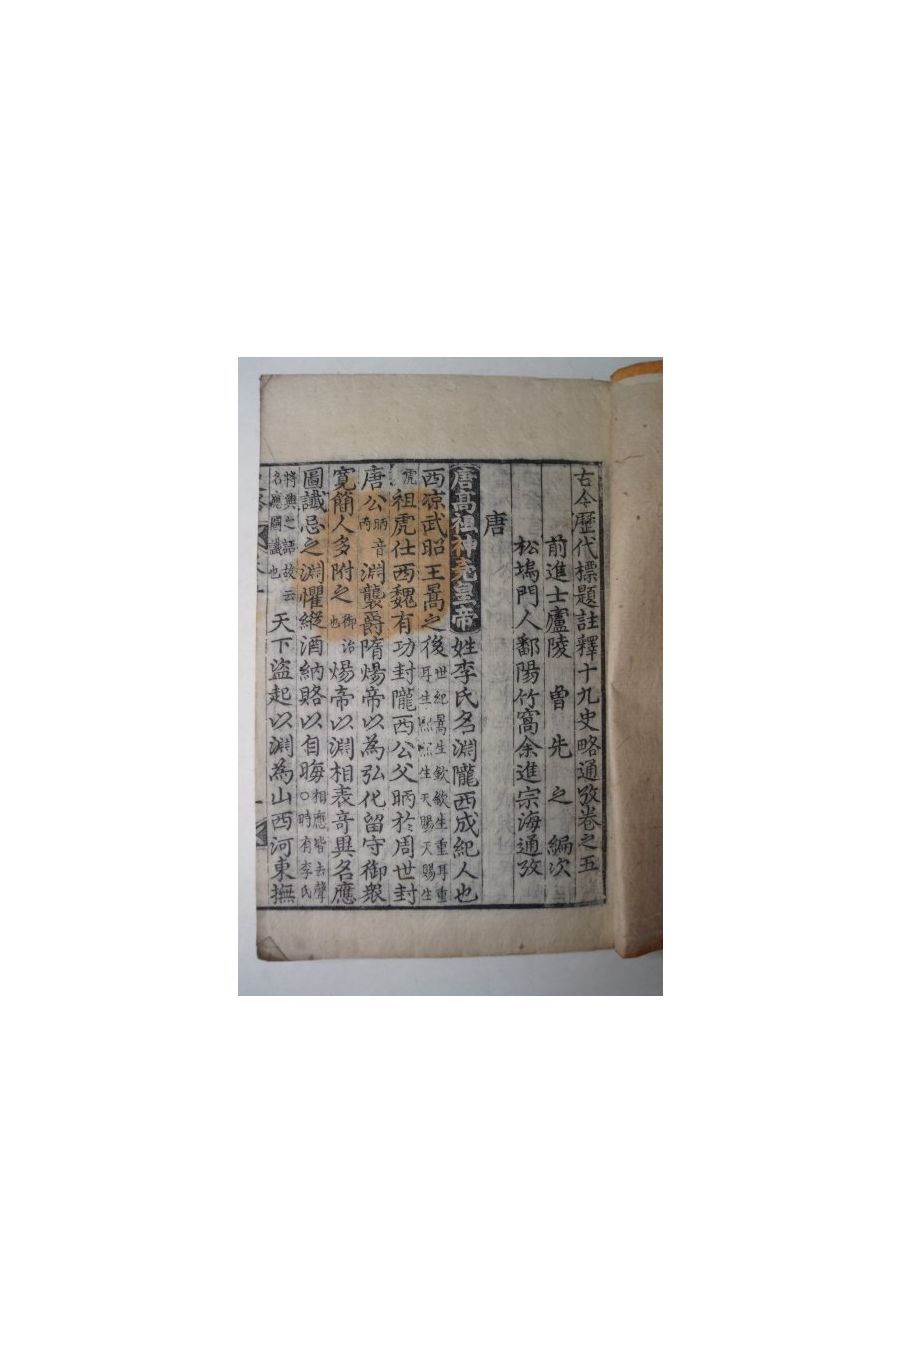 古今歷代標題註釋十九史略通攷卷之五
前進士廬陵 曾 先 之 編次
松塢門人鄱陽竹窩余進宗海通攷
唐
唐高祖神堯皇帝姓李氏名淵隴西成紀人也
西凉武昭王暠之後世紀暠生歆歆生重耳重耳生熙熙生天賜天賜生
虎祖虎仕西魏有功封隴西公父昞於周世封
唐公昞音丙淵襲爵隋煬帝以為弘化留守御衆
寛簡人多附之御治也煬帝以淵相表奇異名應
圖讖忌之淵懼縱酒納賂以自晦相應皆去聲○時有李氏
將興之語故云名應圖讖也天下盜起以淵為山西河東撫